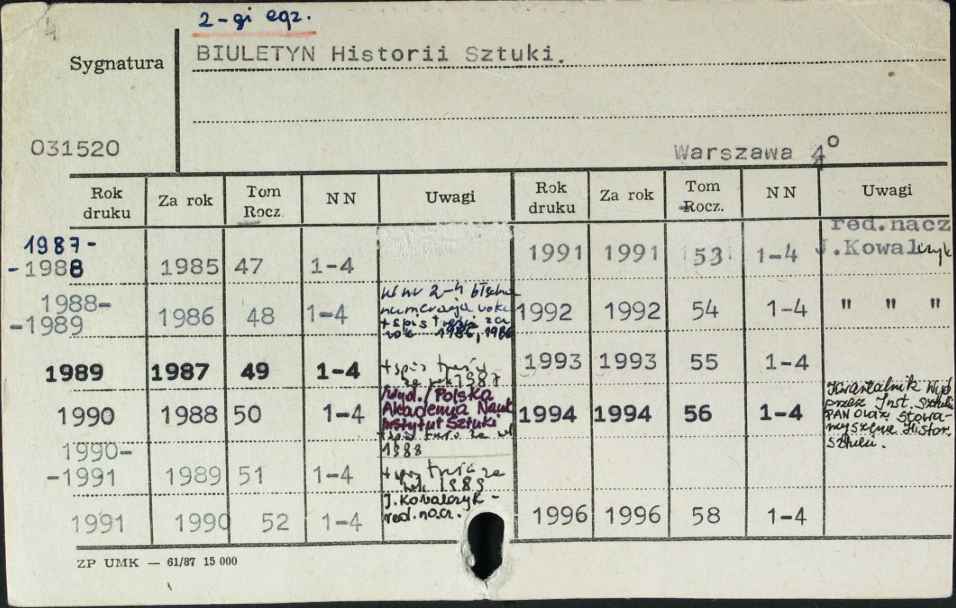 2-gi egz.
Sygnatura BIULETYN Historii Sztuki.
031520
Warszawa 4º
Rok druku Za rok Tom Rocz. NN Uwagi Rok druku Za rok Tom Rocz. NN Uwagi
1987-
-1988 1985 47 1-4
1988-
-1989 1986 48 1-4 w nr 2-4 błędna
numeracja roku
+ spis treści za
rok 1985, 1986
1989 1987 49 1-4 + spis treści
za rok 1987
1990 1988 50 1-4 Wyd. / Polska
Akademia Nauk
Instytut Sztuki
+ spis treści za
1988
1990-
-1991 1989 51 1-4 + spis treści za
rok 1989
1991 1990 52 1-4 J. Kowalczyk -
red. nacz.
1991 1991 53 1-4 red.nacz
J.Kowalczyk
1992 1992 54 1-4 " " "
1993 1993 55 1-4
1994 1994 56 1-4 Kwartalnik Wyd.
przez Inst. Sztuki
PAN oraz Stowa-
rzyszenie Histor.
Sztuki.
1996 1996 58 1-4
ZP UMK — 61/87 15 000